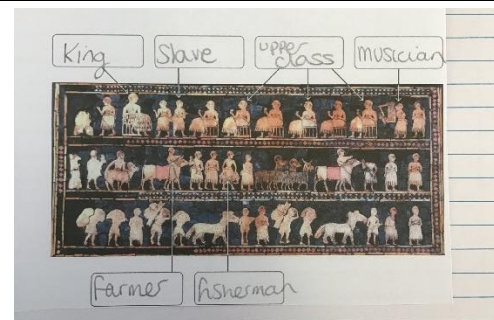 King
Slave
upper
class
musician
farmer
fisherman